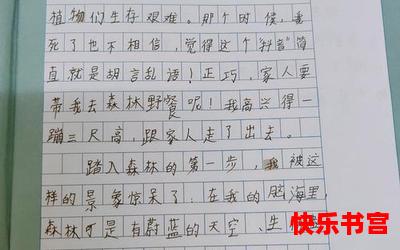 植物们生存艰难。那个时候,我
死了也不相信,觉得这个"抖音"简
直就是胡言乱语!正巧,家人要
带我去森林野餐呢!我高兴得一
蹦三尺高,跟家人走了出去。
踏入森林的第一步,我被这
样的景象惊呆了,在我的脑海里,
森林可是有蔚蓝的天空、生
快乐书宫